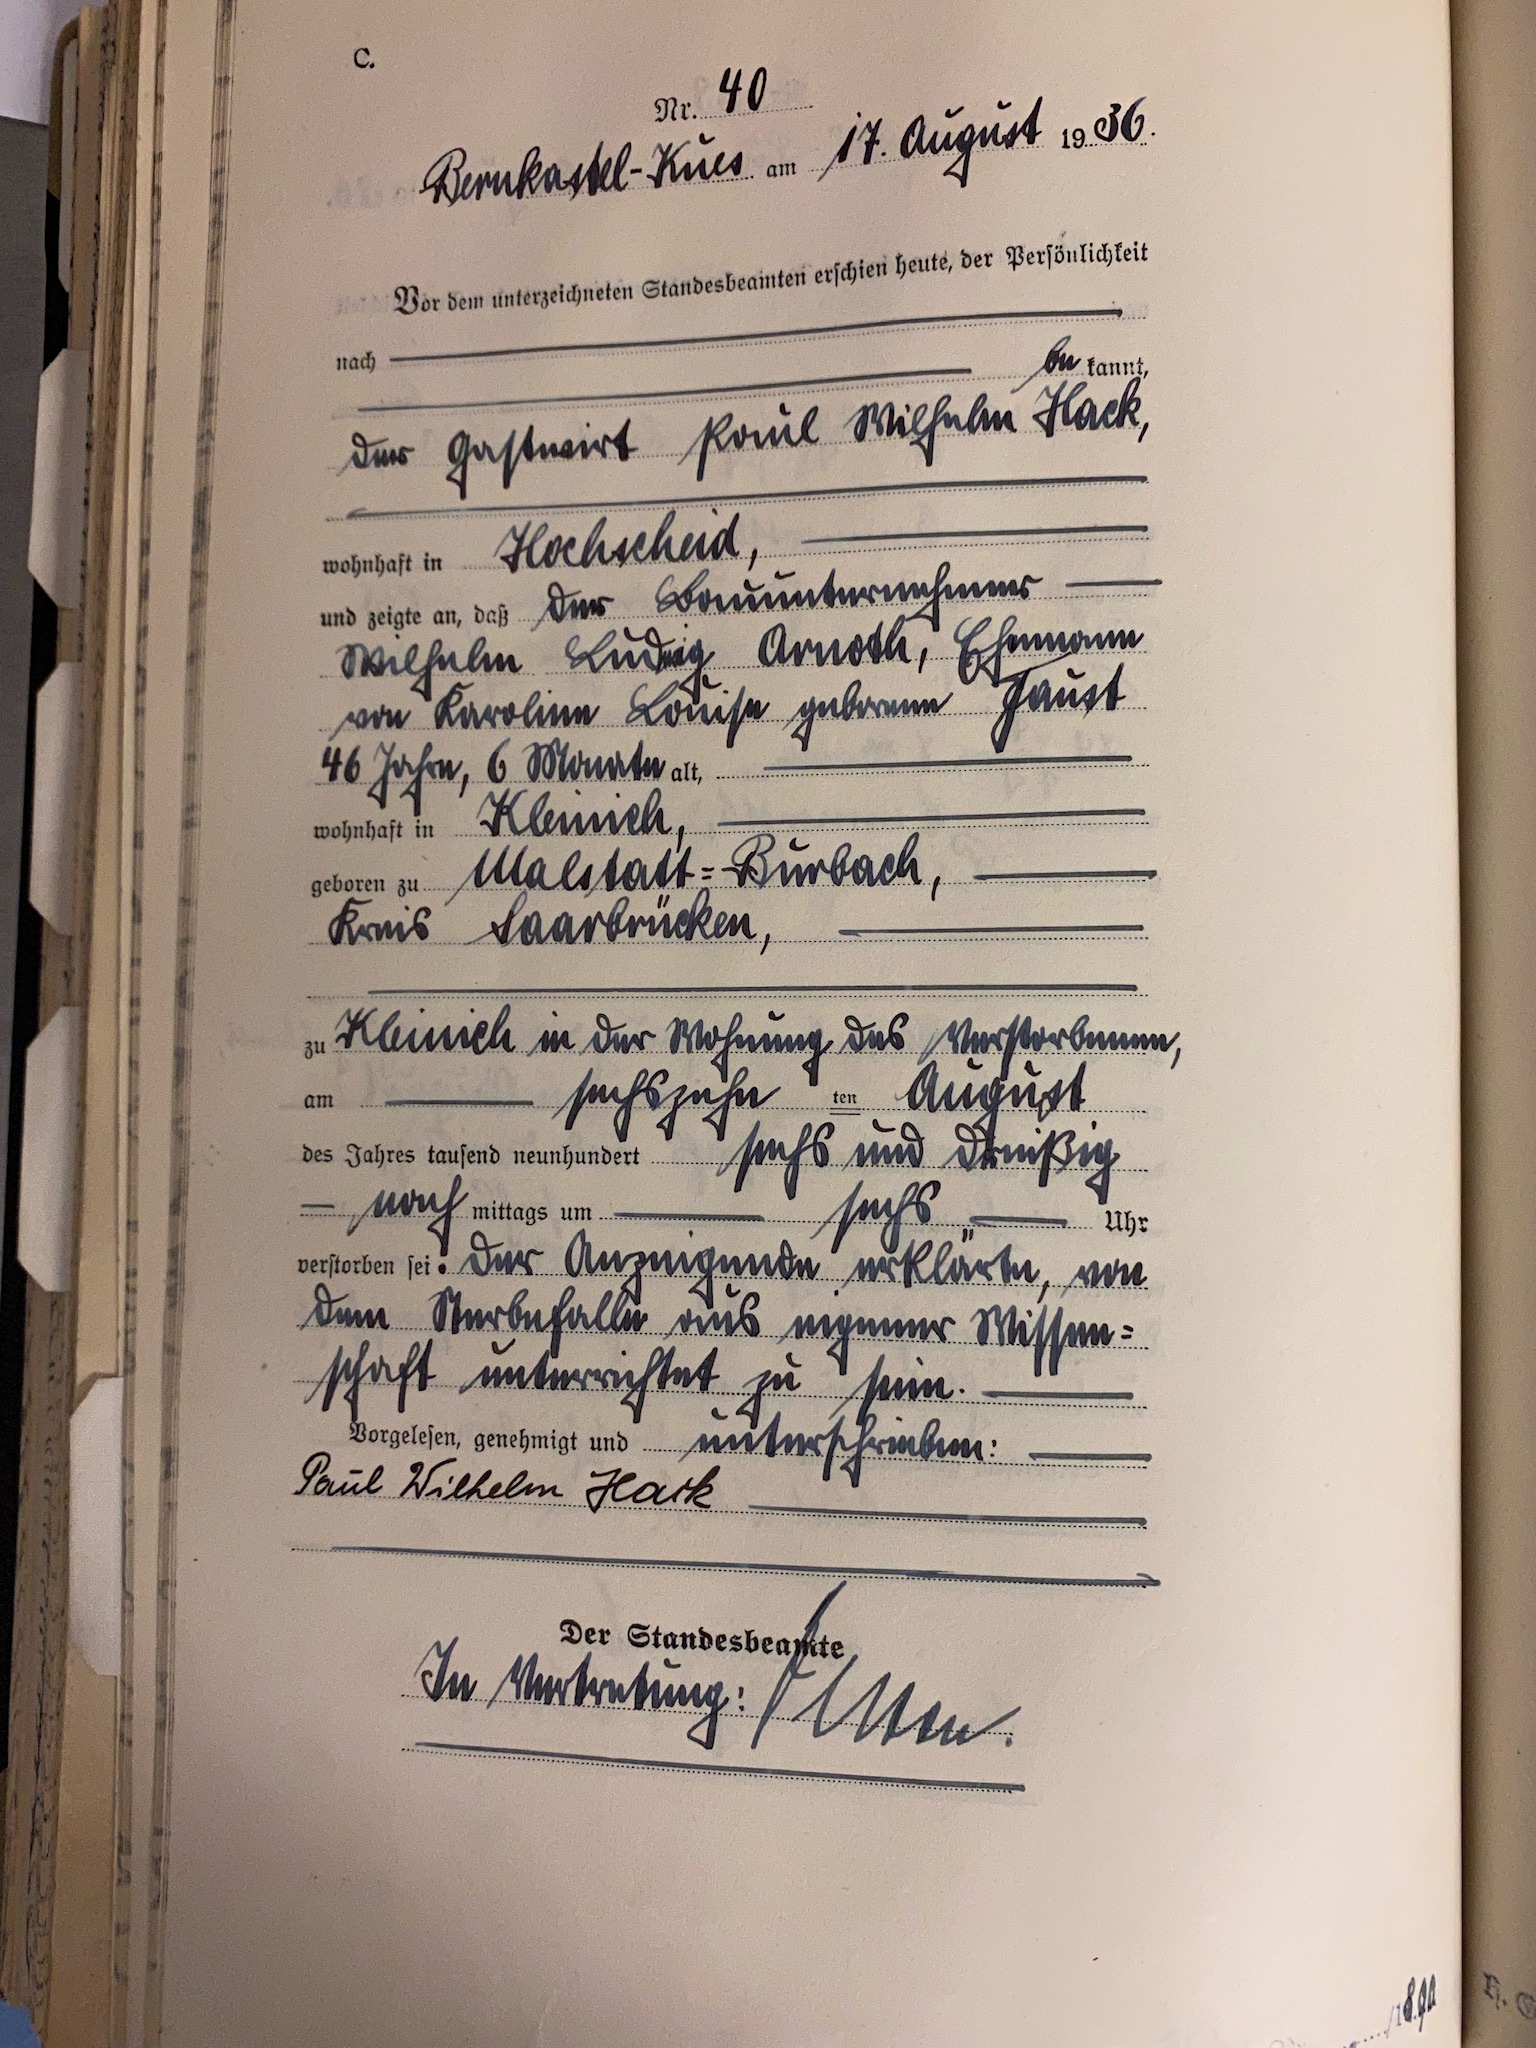 C.
Nr. 40
Bernkastel-Kues am 17. August 1936.
Vor dem unterzeichneten Standesbeamten erschien heute, der Persönlichkeit
nach
be kannt,
der Gastwirt Paul Wilhelm Hack,
wohnhaft in Hochscheid,
und zeigte an, daß der Bauunternehmer
Wilhelm Ludwig Arnoth, Ehemann
von Karoline Louise geborene Faust
46 Jahre, 6 Monate alt,
wohnhaft in Kleinich,
geboren zu Malstatt=Burbach,
Kreis Saarbrücken,
zu Kleinich in der Wohnung des Verstorbenen,
am sechszehn ten August
des Jahres tausend neunhundert sechs und dreißig
nach mittags um sechs Uhr
verstorben sei. Der Anzeigende erklärte, von
dem Sterbefalle aus eigener Wissen=
schaft unterrichtet zu sein.
Vorgelesen, genehmigt und unterschrieben:
Paul Wilhelm Hack
Der Standesbeamte
In Vertretung: